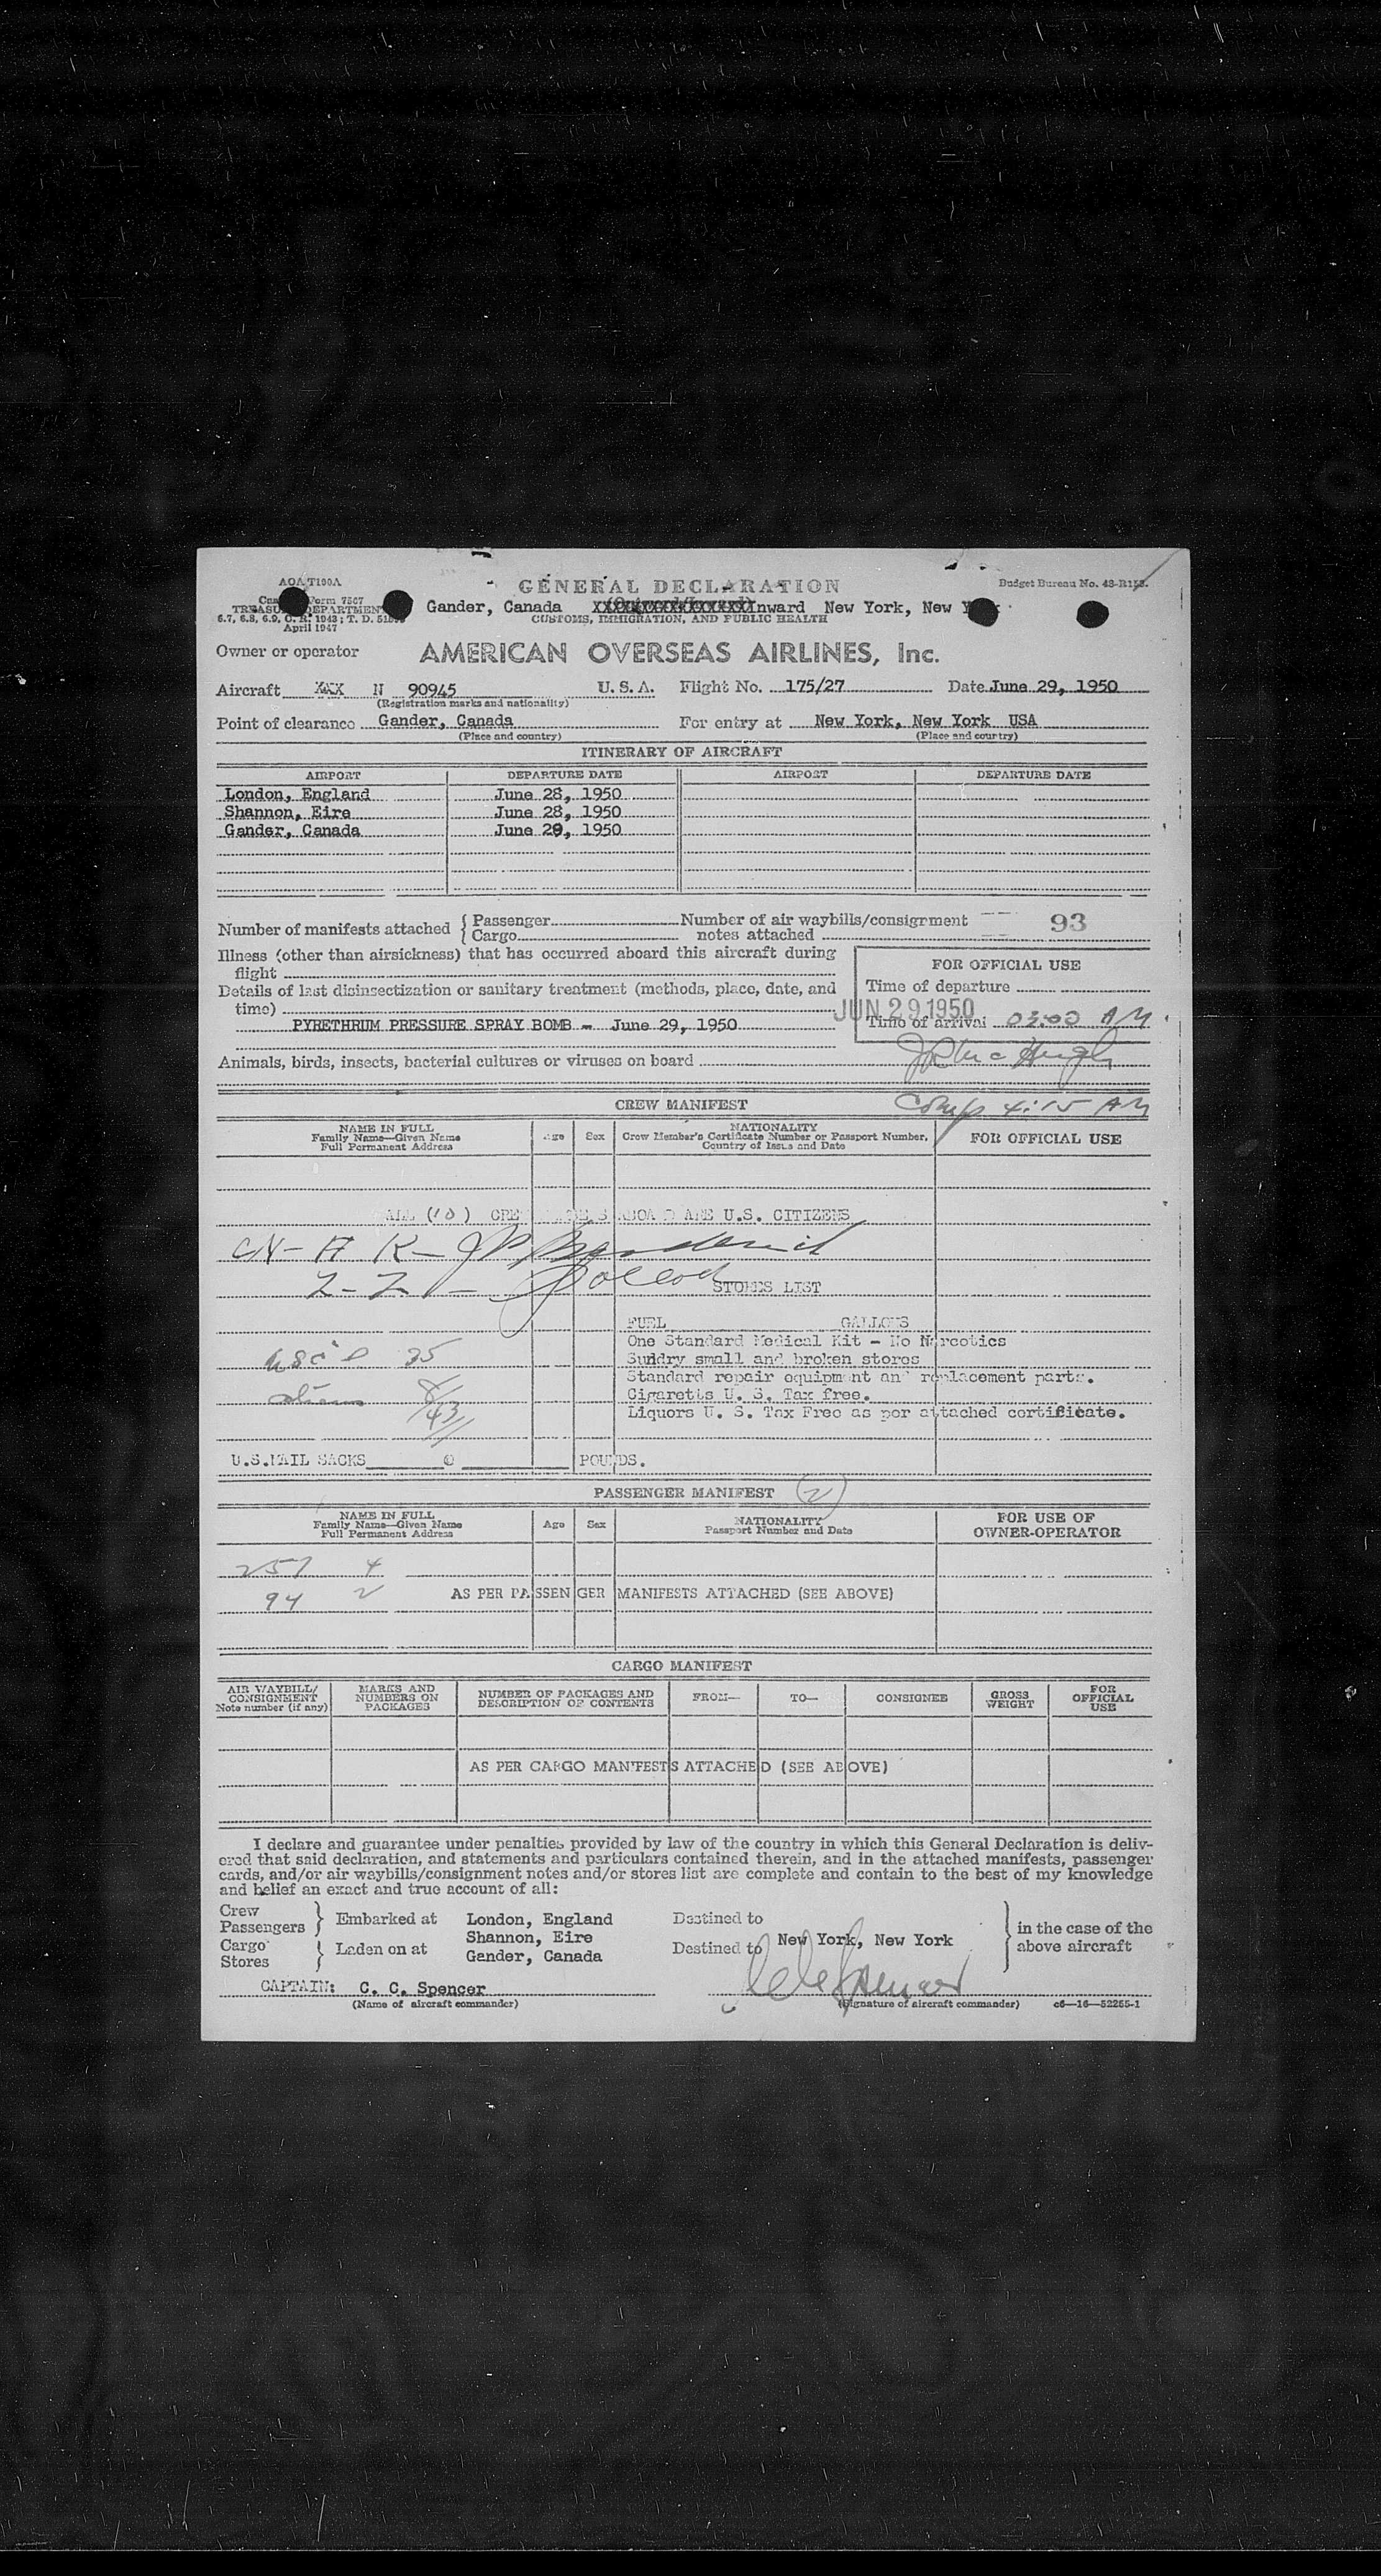 AOA T100A
GENERAL DECLARATION
Budget Bureau No. 48-R158.
Form 7507
TREASURY DEPARTMENT
Gander, Canada Inward New York, New
6.7, 6.8, 6.9, C. R. 1943; T. D.
CUSTOMS, IMMIGRATION, AND PUBLIC HEALTH
April 1947
Owner or operator AMERICAN OVERSEAS AIRLINES, Inc.
Aircraft XXX N 90945 U. S. A. Flight No. 175/27 Date June 29, 1950
(Registration marks and nationality)
Point of clearance Gander, Canada For entry at New York, New York USA
(Place and country) (Place and country)
ITINERARY OF AIRCRAFT
AIRPORT DEPARTURE DATE AIRPORT DEPARTURE DATE
London, England June 28, 1950
Shannon, Eire June 28, 1950
Gander, Canada June 29, 1950
Number of manifests attached { Passenger Number of air waybills/consignment 93
{ Cargo notes attached
Illness (other than airsickness) that has occurred aboard this aircraft during
flight
FOR OFFICIAL USE
Details of last disinsectization or sanitary treatment (methods, place, date, and
time)
Time of departure
JUN 29 1950
PYRETHRUM PRESSURE SPRAY BOMB - June 29, 1950
Time of arrival 03:00 AM
Animals, birds, insects, bacterial cultures or viruses on board
CREW MANIFEST
Comp 4:15 AM
NAME IN FULL
Family Name—Given Name
Full Permanent Address
Age Sex
NATIONALITY
Crew Member's Certificate Number or Passport Number,
Country of Issue and Date
FOR OFFICIAL USE
ALL (10) CREW MEMBERS ABOARD ARE U.S. CITIZENS
STORES LIST
FUEL GALLONS
One Standard Medical Kit - No Narcotics
Sundry small and broken stores
Standard repair equipment and replacement parts.
Cigaretts U. S. Tax free.
Liquors U. S. Tax Free as per attached certificate.
USC's 35
aliens 8
43
U.S.MAIL SACKS @ POUNDS.
PASSENGER MANIFEST (2)
NAME IN FULL
Family Name—Given Name
Full Permanent Address
Age Sex
NATIONALITY
Passport Number and Date
FOR USE OF
OWNER-OPERATOR
257 4
94 2 AS PER PASSENGER MANIFESTS ATTACHED (SEE ABOVE)
CARGO MANIFEST
AIR WAYBILL/
CONSIGNMENT
Note number (if any)
MARKS AND
NUMBERS ON
PACKAGES
NUMBER OF PACKAGES AND
DESCRIPTION OF CONTENTS
FROM— TO— CONSIGNEE
GROSS
WEIGHT
FOR
OFFICIAL
USE
AS PER CARGO MANIFESTS ATTACHED (SEE ABOVE)
I declare and guarantee under penalties provided by law of the country in which this General Declaration is deliv-
ered that said declaration, and statements and particulars contained therein, and in the attached manifests, passenger
cards, and/or air waybills/consignment notes and/or stores list are complete and contain to the best of my knowledge
and belief an exact and true account of all:
Crew
Passengers } Embarked at London, England Destined to
Shannon, Eire New York, New York
Cargo
Stores } Laden on at Gander, Canada Destined to
in the case of the
above aircraft
CAPTAIN: C. C. Spencer
(Name of aircraft commander)
C C Spencer
(Signature of aircraft commander) c6—16—52255-1